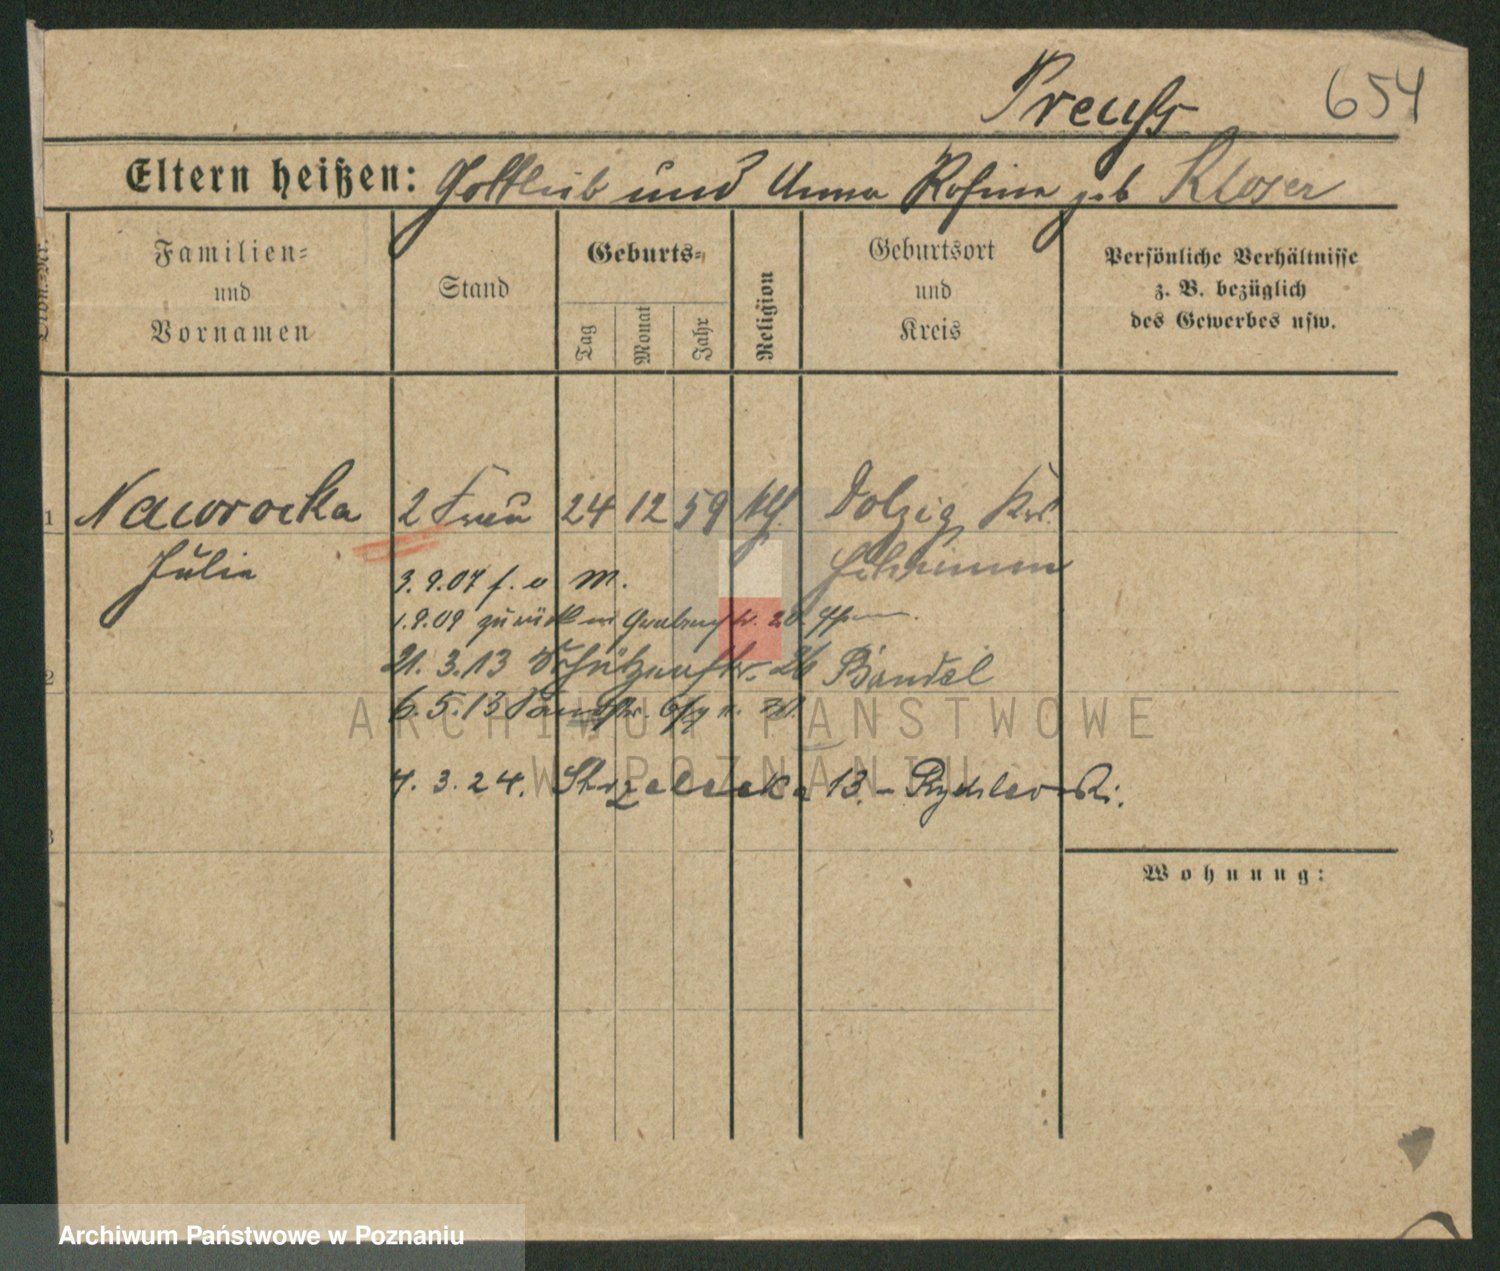 Preuß 654
Eltern heißen: Gottlieb und Anna Rosina geb Kloser
Tron.-Nr.
Familien-
und
Vornamen
Stand
Geburts-
Tag
Monat
Jahr
Religion
Geburtsort
und
Kreis
Persönliche Verhältnisse
z. B. bezüglich
des Gewerbes usw.
1 Nawrocka 2 Frau 24 12 59 Dolzig Krs.
Julie Schrimm
3.9.07 f. u M.
1.9.09 zurück Grabenstr. 20
2
21.3.13 Schützenstr. 26 Bandel
6.5.13
4.3.24. Strzelecka 13. - Rychlewski.
3
Wohnung:
ARCHIWUM PAŃSTWOWE
W POZNANIU
Archiwum Państwowe w Poznaniu